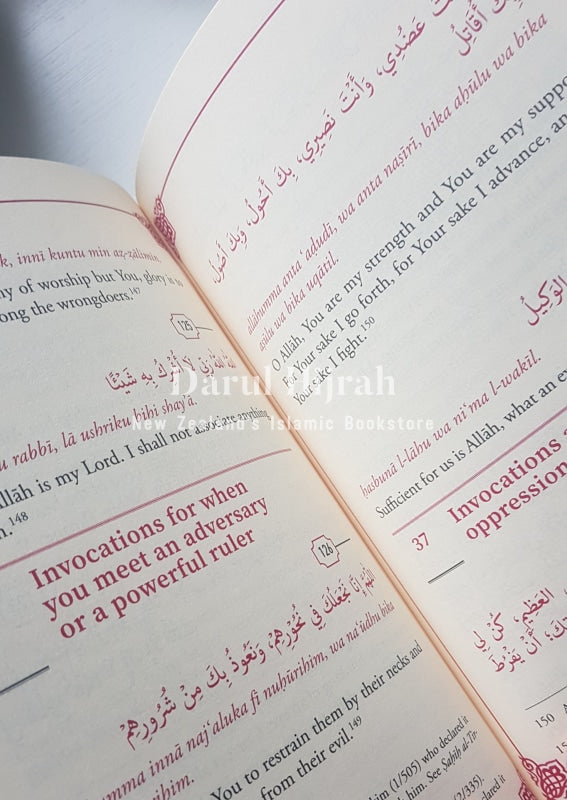 k, innī kuntu min aẓ-ẓālimīn.
ny of worship but You, glory is to
ong the wrongdoers.147
125
اللهُ اللهُ رَبِّي لَا أُشْرِكُ بِهِ شَيْئًا
u rabbī, lā ushriku bihi shay'a.
llāh is my Lord. I shall not associate anything
n.148
Invocations for when
you meet an adversary
or a powerful ruler
126
اللَّهُمَّ إِنَّا نَجْعَلُكَ فِي نُحُورِهِمْ، وَنَعُوذُ بِكَ مِنْ شُرُورِهِمْ
umma innā naj'aluka fī nuḥūrihim, wa na'ūdhu bika
rihim.
You to restrain them by their necks and
from their evil.149
him (1/505) who declared it
him. See Ṣaḥīḥ al-Tir-
(2/335).
clared it
عَضُدِي، وَأَنْتَ نَصِيرِي، بِكَ أَحُولُ، وَبِكَ أَصُولُ
أُقَاتِلُ
allāhumma anta 'aḍudī, wa anta naṣīrī, bika aḥūlu wa bika
aṣūlu wa bika uqātil.
O Allāh, You are my strength and You are my suppo
For Your sake I go forth, for Your sake I advance, an
Your sake I fight.150
الْوَكِيلُ
ḥasbunā l-lāhu wa ni'ma l-wakīl.
Sufficient for us is Allāh, what an ex
37
Invocations
oppression
الْعَظِيمِ، كُنْ لِي
أَنْ يَفْرُطَ
150
Darul Hijrah
New Zealand's Islamic Bookstore